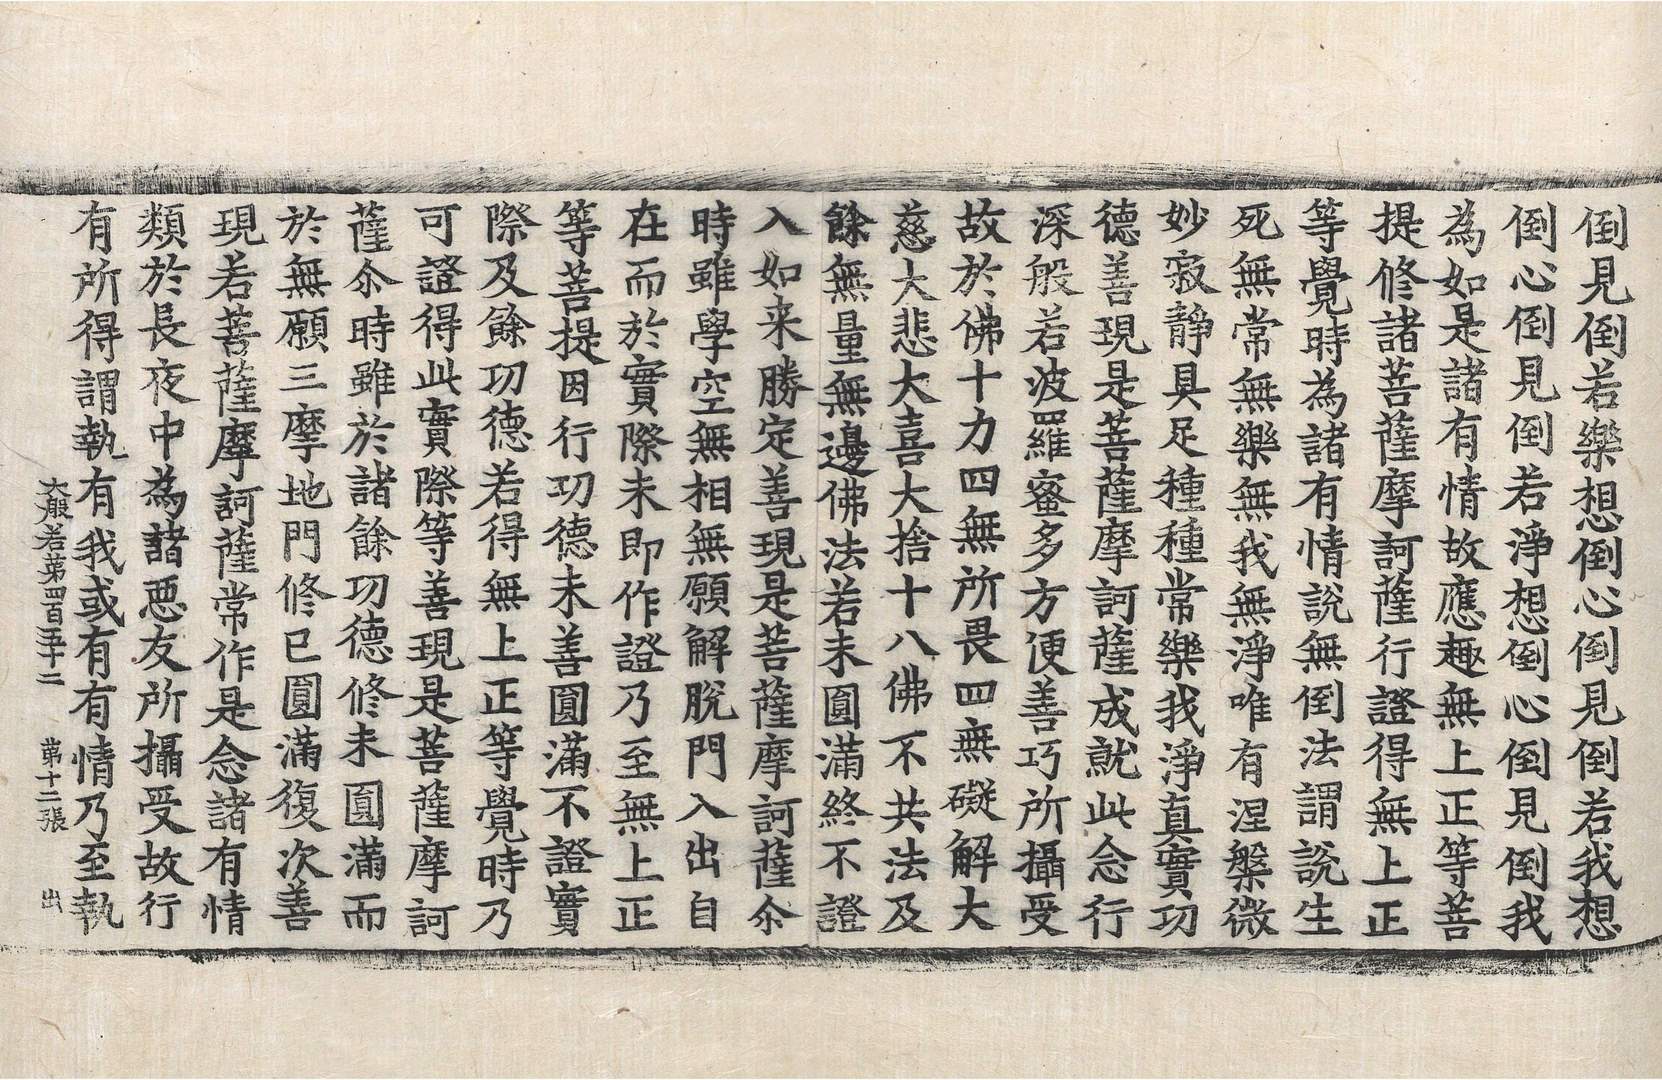 倒見倒若樂想倒心倒見倒若我想
倒心倒見倒若淨想倒心倒見倒我
為如是諸有情故應趣無上正等菩
提修諸菩薩摩訶薩行證得無上正
等覺時為諸有情說無倒法謂說生
死無常無樂無我無淨唯有涅槃微
妙寂靜具足種種常樂我淨真實功
德善現是菩薩摩訶薩成就此念行
深般若波羅蜜多方便善巧所攝受
故於佛十力四無所畏四無礙解大
慈大悲大喜大捨十八佛不共法及
餘無量無邊佛法若未圓滿終不證
入如来勝定善現是菩薩摩訶薩尒
時雖學空無相無願解脫門入出自
在而於實際未即作證乃至無上正
等菩提因行功德未善圓滿不證實
際及餘功德若得無上正等覺時乃
可證得此實際等善現是菩薩摩訶
薩尒時雖於諸餘功德修未圓滿而
於無願三摩地門修已圓滿復次善
現若菩薩摩訶薩常作是念諸有情
類於長夜中為諸惡友所攝受故行
有所得謂執有我或有有情乃至執
大般若第四百五十二 第十二張 出